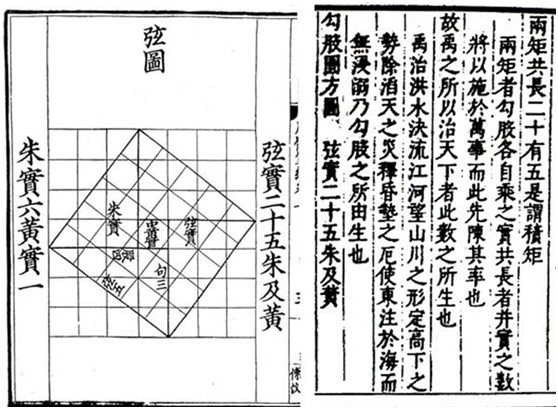 兩矩共長二十有五是謂積矩
兩矩者勾股各自乘之實共長者并實之數
將以施於萬事而此先陳其率也
故禹之所以治天下者此數之所生也
禹治洪水決流江河望山川之形定高下之
勢除滔天之災釋昏墊之厄使東注於海而
無浸溺乃勾股之所由生也
勾股圓方圖 弦實二十五朱及黃
弦圖
弦實二十五朱及黃
弦實
中黃實
朱實
句三
弦五
朱實六黃實一